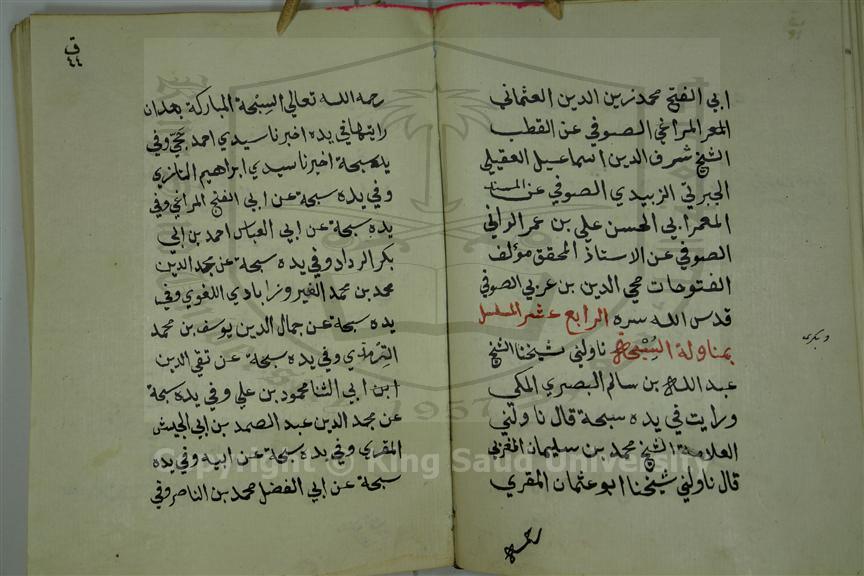 ابي الفتح محمد زين الدين العثماني
المعمر المراغي الصوفي عن القطب
الشيخ شرف الدين اسماعيل العقيلي
الجبرتي الزبيدي الصوفي عن المسند
المعمر ابي الحسن علي بن عمر الواني
الصوفي عن الاستاذ المحقق مؤلف
الفتوحات محي الدين بن عربي الصوفي
قدس الله سره الرابع عشر المسلسل
بمناولة السبحة ناولني شيخنا الشيخ
عبد الله بن سالم البصري المكي
ورايت في يده سبحة قال ناولني
العلامة الشيخ محمد بن سليمان المغربي
قال ناولني شيخنا ابو عثمان المقري
رحمه
ق
٤٤
رحمه الله تعالي السبحة المباركة بعد ان
رايتها في يده اخبرنا سيدي احمد حجي وفي
يده سبحة اخبرنا سيدي ابراهيم التازي
وفي يده سبحة عن ابي الفتح المراغي وفي
يده سبحة عن ابي العباس احمد بن ابي
بكر الرداد وفي يده سبحة عن مجد الدين
محمد بن محمد الفيروزابادي اللغوي وفي
يده سبحة عن جمال الدين يوسف بن محمد
الترمذي وفي يده سبحة عن تقي الدين
ابن ابي الثنا محمود بن علي وفي يده سبحة
عن مجد الدين عبد الصمد بن ابي الجيش
المقري وفي يده سبحة عن ابيه وفي يده
سبحة عن ابي الفضل محمد بن الناصر وفي
Copyright © King Saud University
1957